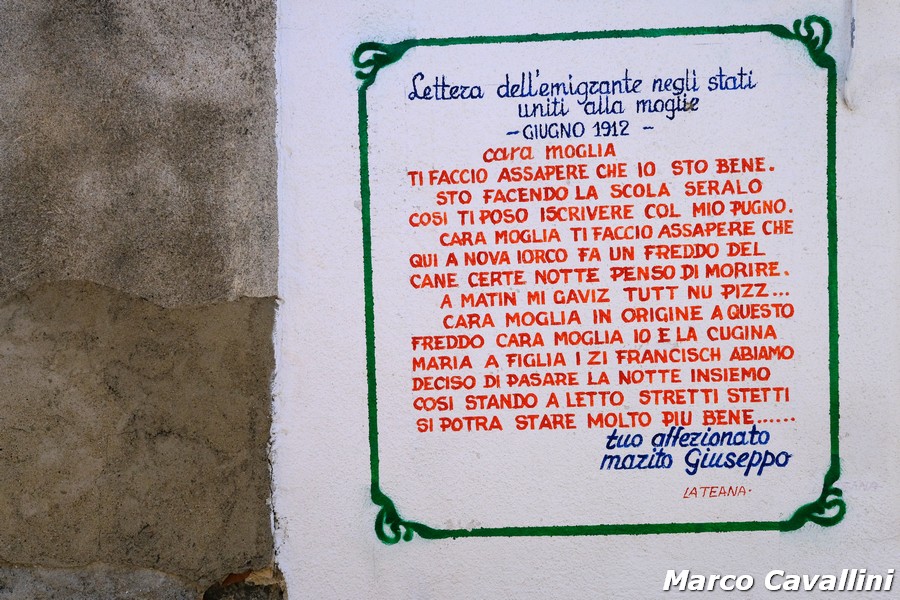 Lettera dell'emigrante negli stati
uniti alla moglie
- GIUGNO 1912 -
cara MOGLIA
TI FACCIO ASSAPERE CHE IO STO BENE.
STO FACENDO LA SCOLA SERALO
COSI TI POSO ISCRIVERE COL MIO PUGNO.
CARA MOGLIA TI FACCIO ASSAPERE CHE
QUI A NOVA IORCO FA UN FREDDO DEL
CANE CERTE NOTTE PENSO DI MORIRE.
A MATIN' MI GAVIZ TUTT NU PIZZ...
CARA MOGLIA IN ORIGINE A QUESTO
FREDDO CARA MOGLIA IO E LA CUGINA
MARIA A FIGLIA I ZI FRANCISCH ABIAMO
DECISO DI PASARE LA NOTTE INSIEMO
COSI STANDO A LETTO STRETTI STETTI
SI POTRA STARE MOLTO PIU BENE......
tuo affezionato
marito Giuseppo
LATEANA.
Marco Cavallini